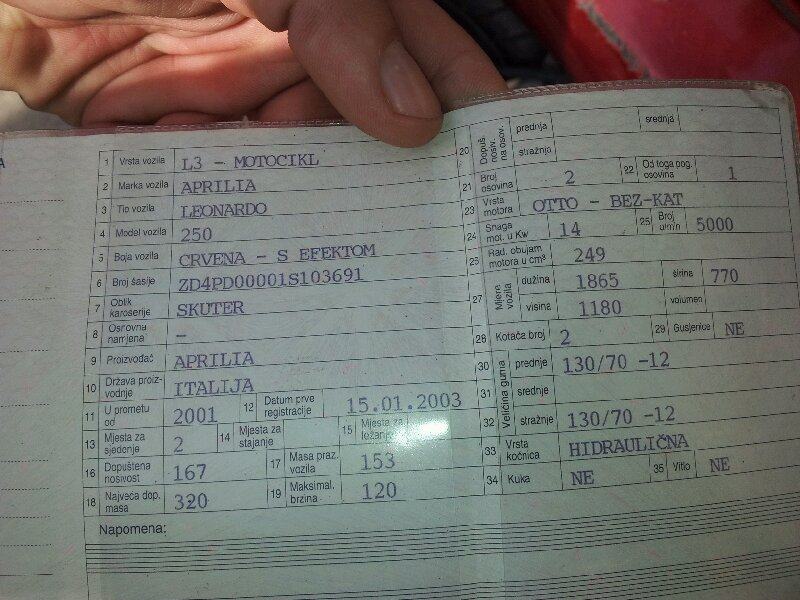 1 Vrsta vozila L3 - MOTOCIKL
2 Marka vozila APRILIA
3 Tip vozila LEONARDO
4 Model vozila 250
5 Boja vozila CRVENA - S EFEKTOM
6 Broj šasije ZD4PD00001S103691
7 Oblik karoserije SKUTER
8 Osnovna namjena -
9 Proizvođač APRILIA
10 Država proiz-vodnje ITALIJA
11 U prometu od 2001 12 Datum prve registracije 15.01.2003
13 Mjesta za sjedenje 2 14 Mjesta za stajanje 15 Mjesta za ležanje
16 Dopuštena nosivost 167 17 Masa praz. vozila 153
18 Najveća dop. masa 320 19 Maksimal. brzina 120
Napomena:
20 Dopuš. nosiv. na osov. prednja srednja
stražnja
21 Broj osovina 2 22 Od toga pog. osovina 1
23 Vrsta motora OTTO - BEZ-KAT
24 Snaga mot. u Kw 14 25 Broj o/min 5000
26 Rad. obujam motora u cm³ 249
27 Mjere vozila dužina 1865 širina 770
visina 1180 volumen
28 Kotača broj 2 29 Gusjenice NE
30 Veličina guma prednje 130/70 -12
31 srednje
32 stražnje 130/70 -12
33 Vrsta kočnica HIDRAULIČNA
34 Kuka NE 35 Vitlo NE